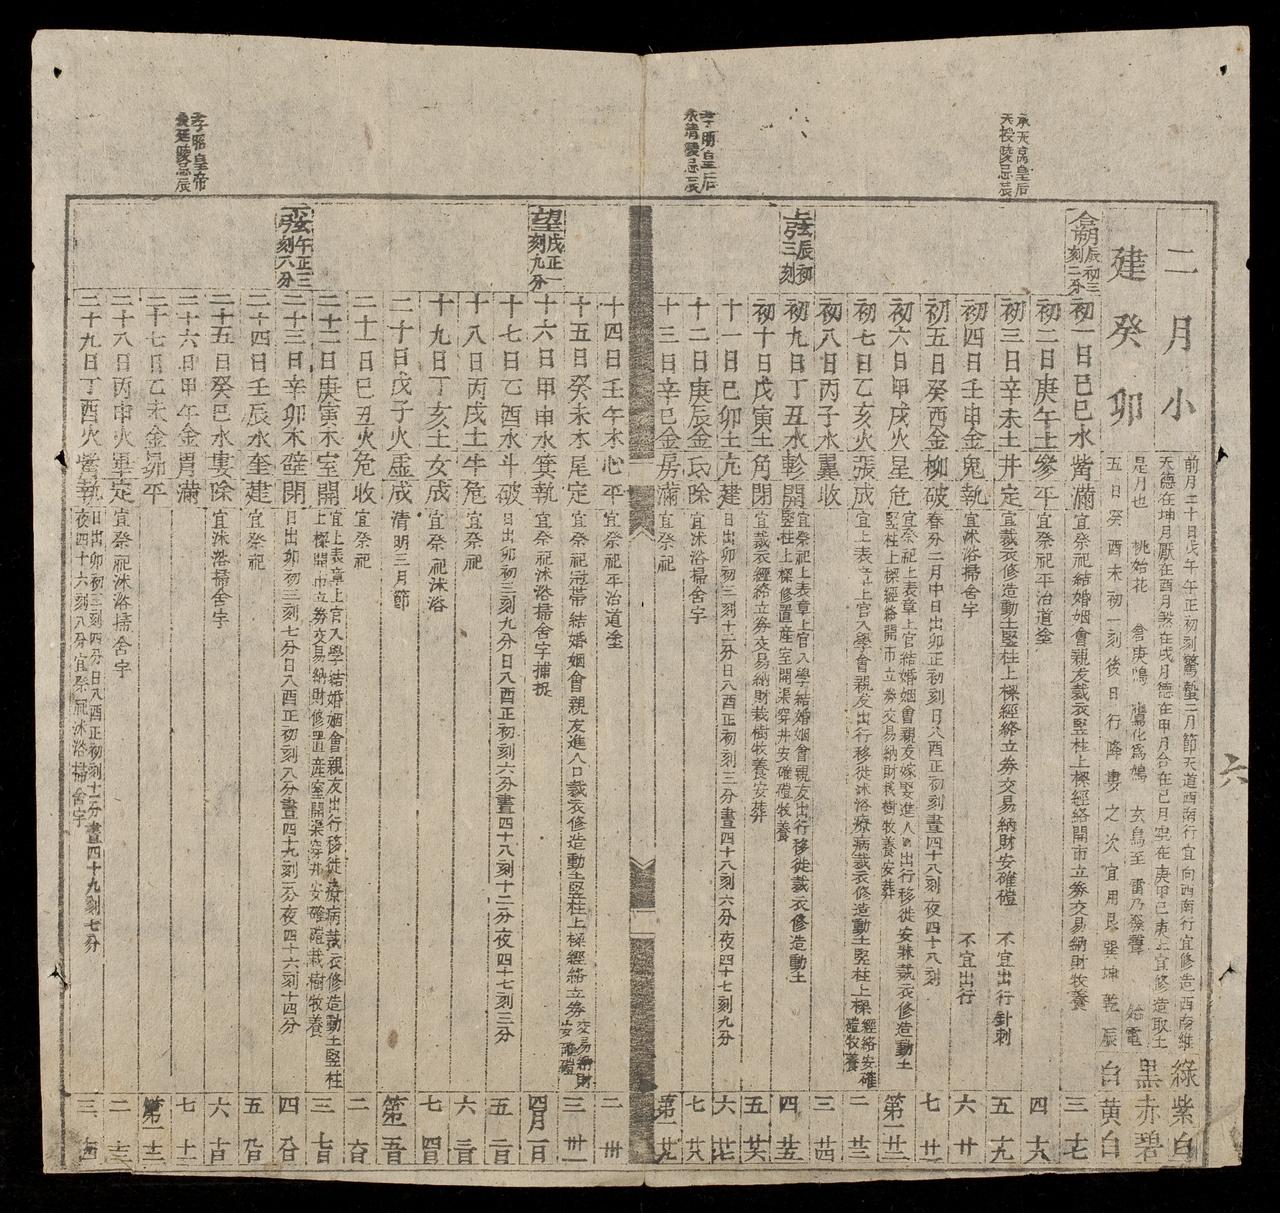 二月小
建癸卯
前月二十日戊午午正初刻驚蟄二月節天道西南行宜向西南行宜修造西南維
天德在坤月厭在酉月煞在戌月德在甲月合在己月空在庚甲己庚上宜修造取土
是月也 桃始花 倉庚鳴 鷹化為鳩 玄鳥至 雷乃發聲 始電
五日癸酉未初一刻後日行降婁之次宜用艮巽坤乾辰
綠紫白
黑赤碧
白黃白
六
合朔辰初三刻二分
初一日己巳水觜滿宜祭祀結婚姻會親友裁衣竪柱上樑經絡開市立券交易納財牧養 三 十七
初二日庚午土參平宜祭祀平治道塗 四 十八
承天高皇后
天授陵忌辰
初三日辛未土井定宜裁衣修造動土竪柱上樑經絡立券交易納財安碓磑 不宜出行針刺 五 十九
初四日壬申金鬼執宜沐浴掃舍宇 不宜出行 六 廿
初五日癸酉金柳破春分二月中日出卯正初刻日入酉正初刻晝四十八刻夜四十八刻 七 廿一
初六日甲戌火星危宜祭祀上表章上官結婚姻會親友嫁娶進人口出行移徙安牀裁衣修造動土
竪柱上樑經絡開市立券交易納財栽樹牧養安葬 第一 廿二
初七日乙亥火張成宜上表章上官入學會親友出行移徙沐浴療病裁衣修造動土竪柱上樑經絡安碓磑牧養 二 廿三
初八日丙子水翼收 三 廿四
上弦辰初三刻
初九日丁丑水軫開宜祭祀上表章上官入學結婚姻會親友出行移徙裁衣修造動土
竪柱上樑修置產室開渠穿井安碓磑牧養 四 廿五
初十日戊寅土角閉宜裁衣經絡立券交易納財栽樹牧養安葬 五 廿六
十一日己卯土亢建日出卯初三刻十二分日入酉正初刻三分晝四十八刻六分夜四十七刻九分 六 廿七
十二日庚辰金氐除宜沐浴掃舍宇 七 廿八
孝明皇后
永清陵忌辰
十三日辛巳金房滿宜祭祀 第一 廿九
十四日壬午木心平宜祭祀平治道塗 二 卅
十五日癸未木尾定宜祭祀冠帶結婚姻會親友進人口裁衣修造動土竪柱上樑經絡立券交易納財安碓磑 三 卅一
望戌正一刻九分
十六日甲申水箕執宜祭祀沐浴掃舍宇捕捉 四月一日
十七日乙酉水斗破日出卯初三刻九分日入酉正初刻六分晝四十八刻十二分夜四十七刻三分 五 二日
十八日丙戌土牛危宜祭祀 六 三日
十九日丁亥土女成宜祭祀沐浴 七 四日
二十日戊子火虛成清明三月節 第一 五日
二十一日己丑火危收宜祭祀 二 六日
二十二日庚寅木室開宜上表章上官入學結婚姻會親友出行移徙療病裁衣修造動土竪柱
上樑開市立券交易納財修置產室開渠穿井安碓磑栽樹牧養 三 七日
下弦午正三刻六分
二十三日辛卯木壁閉日出卯初三刻七分日入酉正初刻八分晝四十九刻一分夜四十六刻十四分 四 八日
二十四日壬辰水奎建宜祭祀 五 九日
二十五日癸巳水婁除宜沐浴掃舍宇 六 十日
孝昭皇帝
長延陵忌辰
二十六日甲午金胃滿 七 十一
二十七日乙未金昴平 第一 十二
二十八日丙申火畢定宜祭祀沐浴掃舍宇 二 十三
二十九日丁酉火觜執日出卯初三刻四分日入酉正初刻十一分晝四十九刻七分
夜四十六刻八分宜祭祀沐浴掃舍宇 三 十四